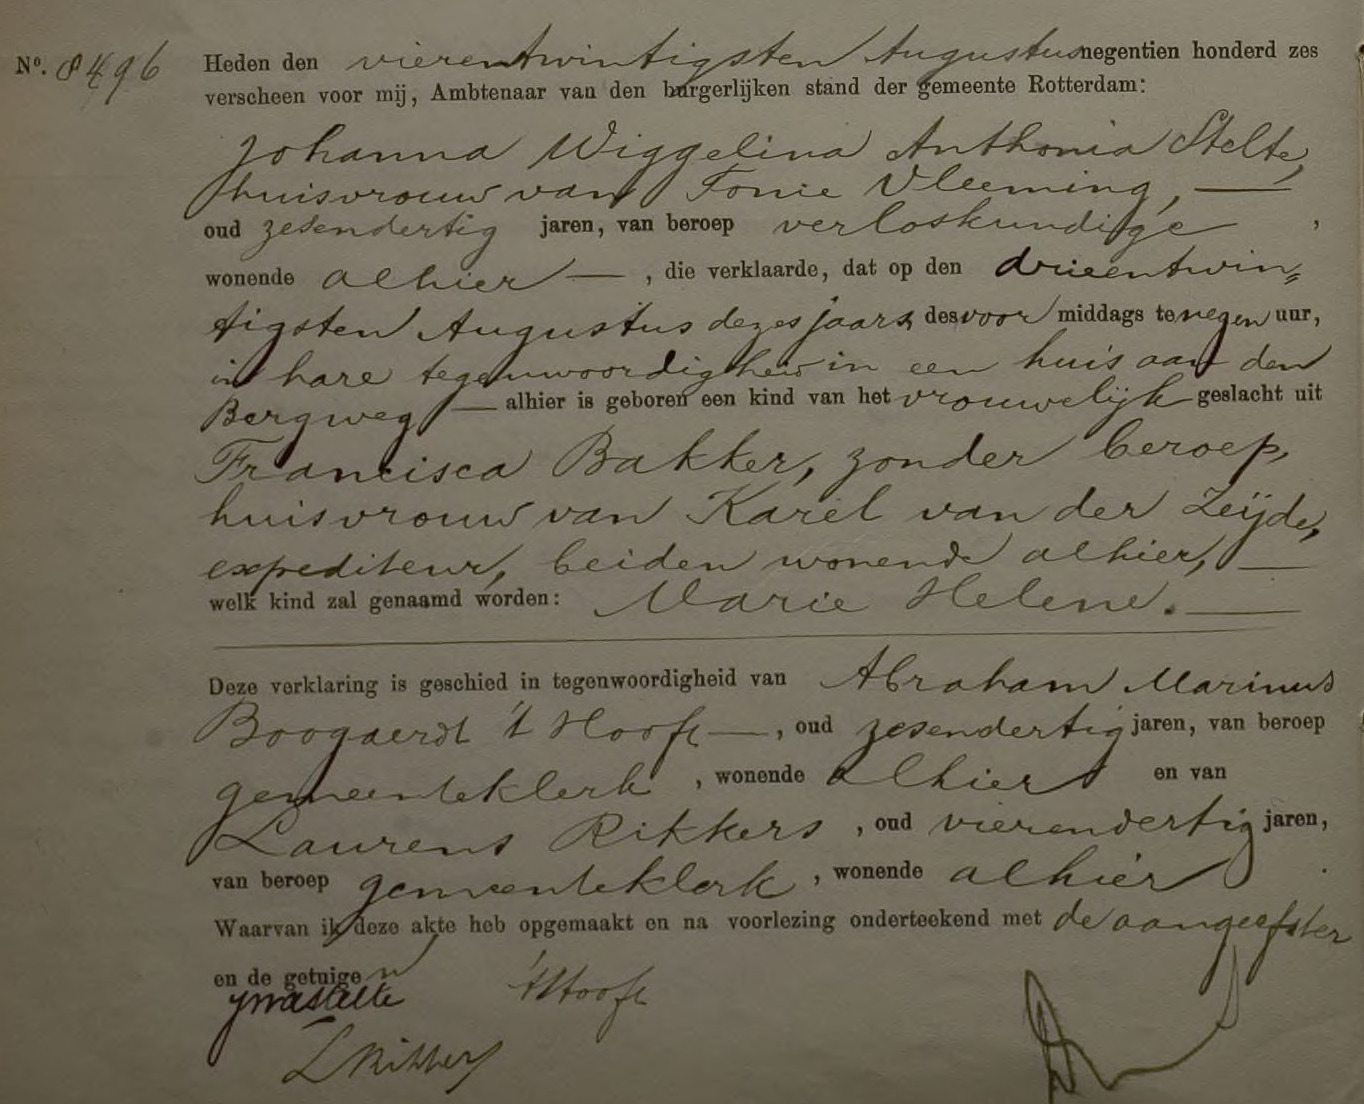 No. 8496 Heden den vierentwintigsten Augustus negentien honderd zes
verscheen voor mij, Ambtenaar van den burgerlijken stand der gemeente Rotterdam:
Johanna Wiggelina Anthonia Stelte,
huisvrouw van Tonie Vleeming, —
oud zesendertig jaren, van beroep verloskundige ,
wonende alhier — , die verklaarde, dat op den drieentwin„
tigsten Augustus dezes jaars, des voor middags te negen uur,
in hare tegenwoordigheid in een huis aan den
Bergweg — alhier is geboren een kind van het vrouwelijk geslacht uit
Francisca Bakker, zonder beroep,
huisvrouw van Karel van der Zeijde,
expediteur, beiden wonende alhier, —
welk kind zal genaamd worden: Marie Helene. —
Deze verklaring is geschied in tegenwoordigheid van Abraham Marinus
Boogaerdt 't Hooft — , oud zesendertig jaren, van beroep
gemeenteklerk , wonende alhier en van
Laurens Rikkers , oud vierendertig jaren,
van beroep gemeenteklerk , wonende alhier .
Waarvan ik deze akte heb opgemaakt en na voorlezing onderteekend met de aangeefster
en de getuigen
JWAStelte 't Hooft
L Rikkers